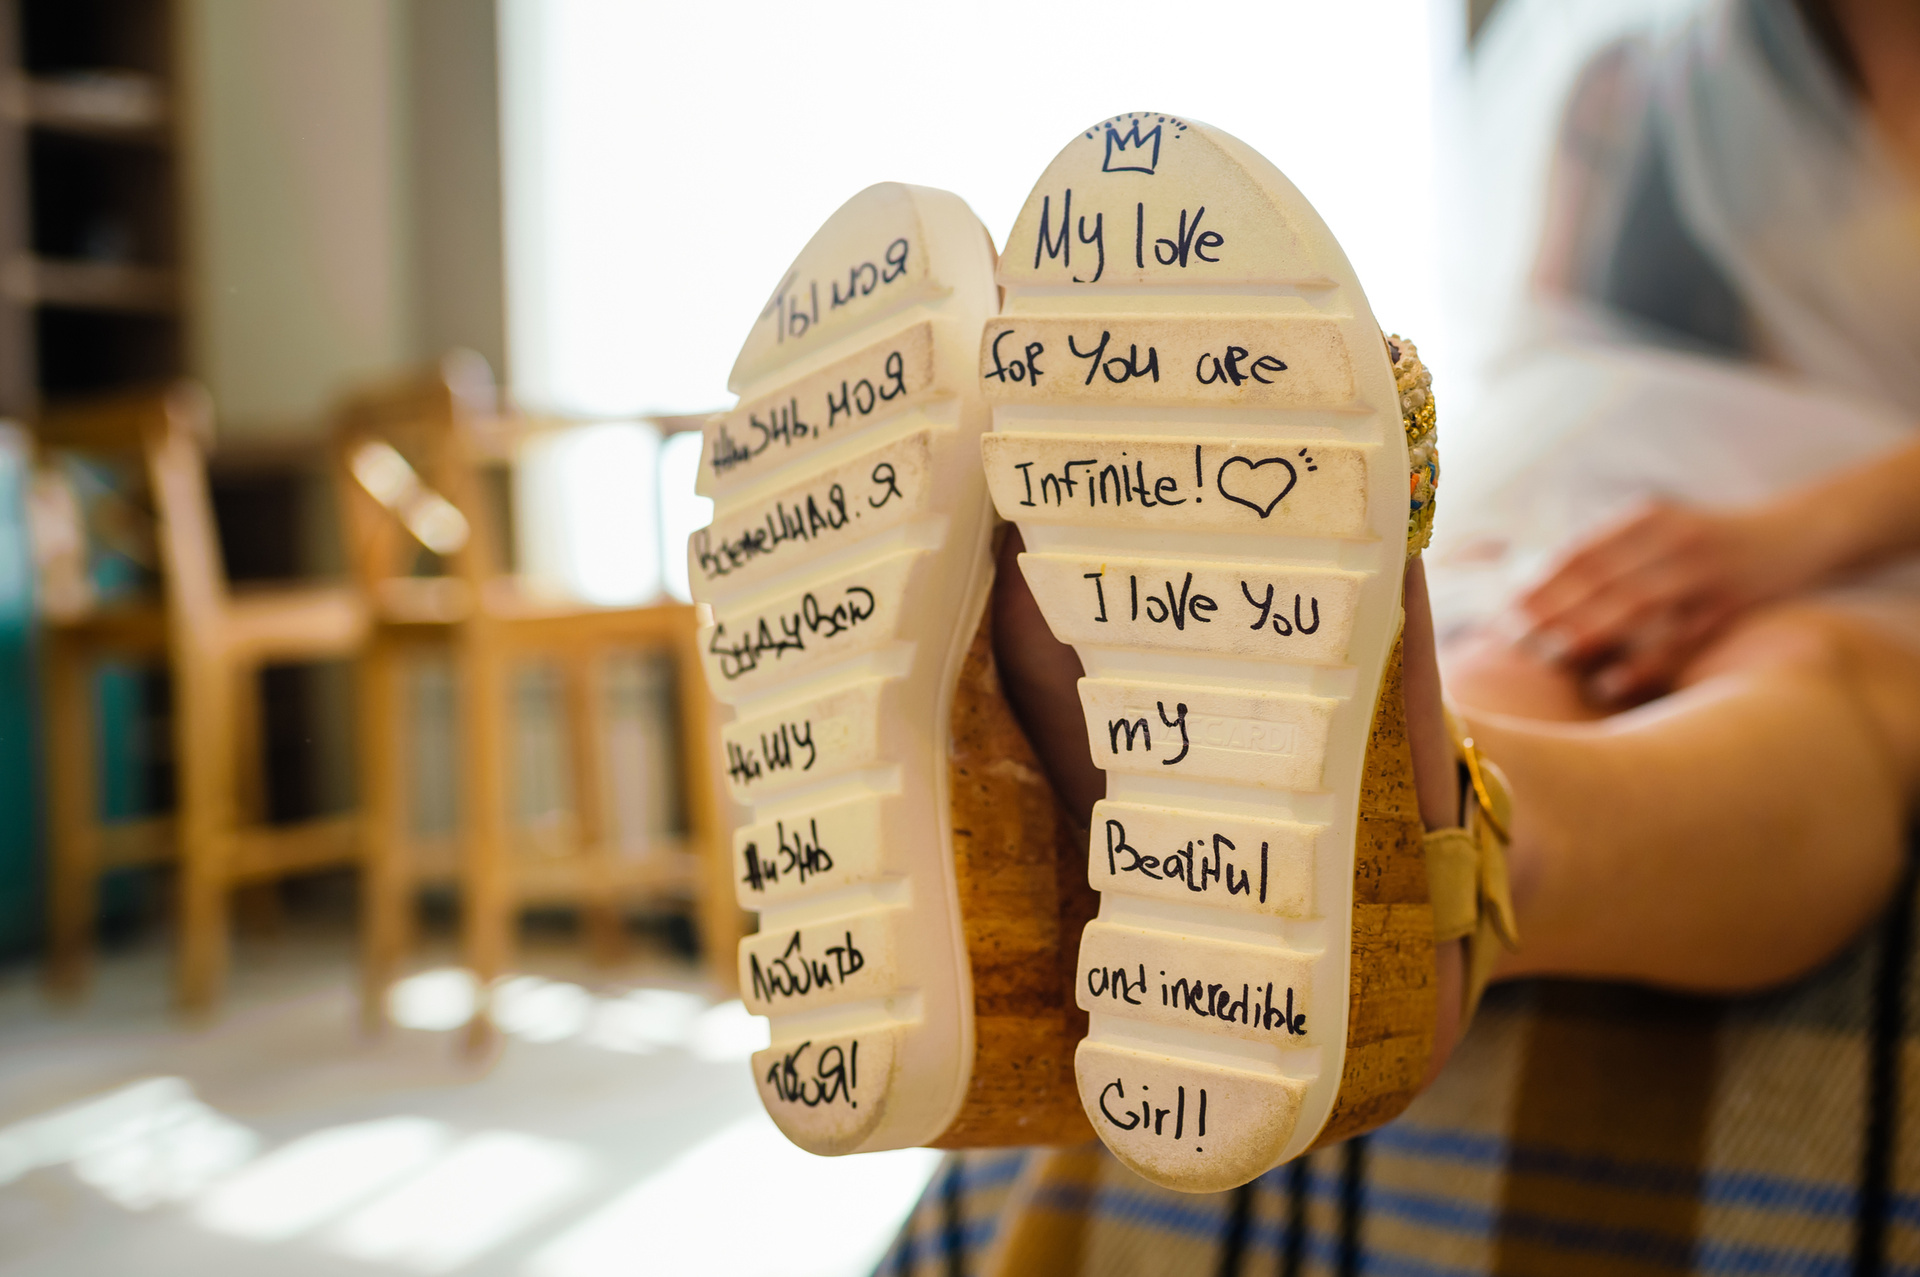 Ты моя
жизнь, моя
Вселенная. Я
буду всю
нашу
жизнь
любить
тебя!
My love
for You are
Infinite!
I love You
my
Beatiful
and incredible
Girl!